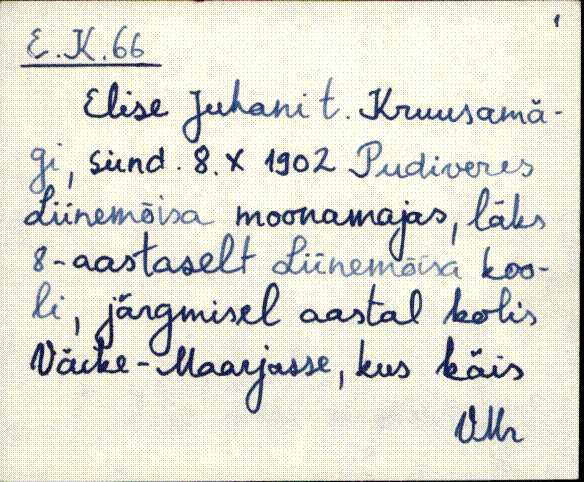 1
E.K.66
Elise Juhani t. Kruusamä-
gi, sünd. 8.X 1902 Pudiveres
Liinemõisa moonamajas, läks
8-aastaselt Liinemõisa koo-
li, järgmisel aastal kolis
Väike-Maarjasse, kus käis
VMr